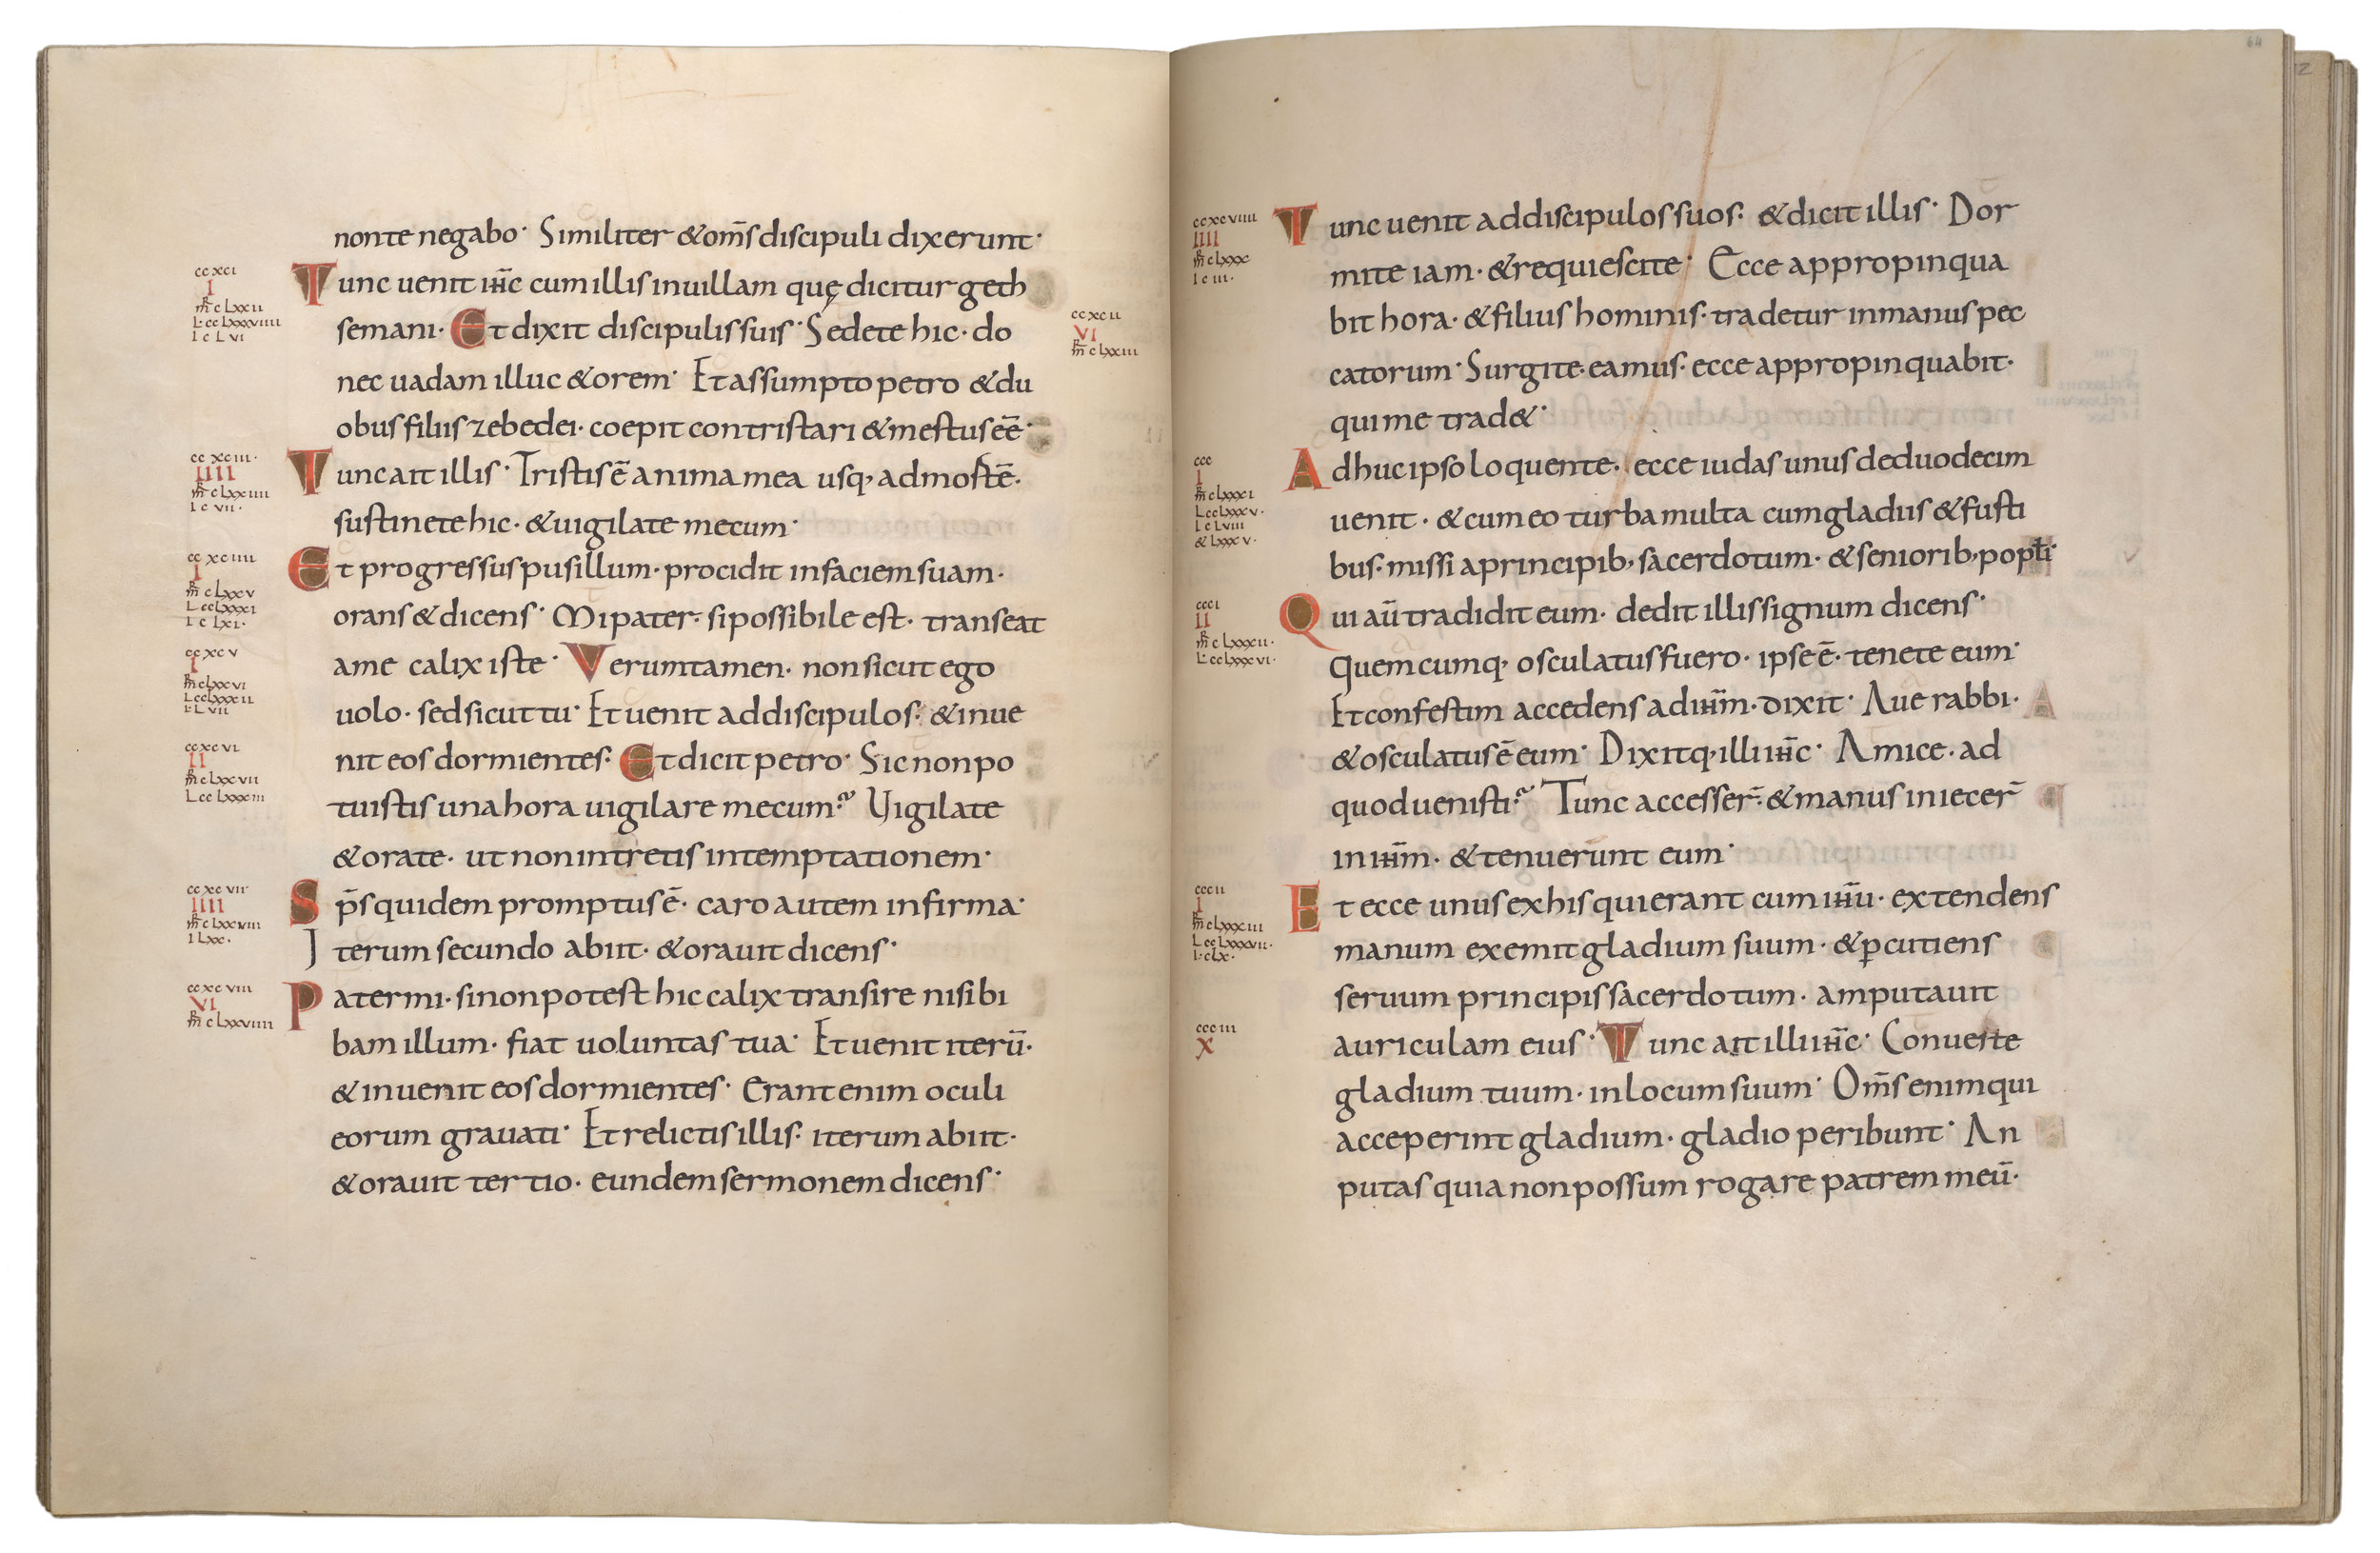 non te negabo· Similiter & om̄s discipuli dixerunt·
ccxci
I
m̄r clxxii
L· cclxxxviiii
I clvi
Tunc uenit ih̄c cum illis in uillam quę dicitur geth
semani· Et dixit discipulis suis· Sedete hic· do
ccxcii
VI
m̄r clxxiii
nec uadam illuc & orem· Et assumpto petro & du
obus filiis zebedei· coepit contristari & mestus eē·
ccxciii·
IIII
m̄r clxxiiii
I cvii·
Tunc ait illis· Tristis ē anima mea usq, ad mortē·
sustinete hic· & uigilate mecum·
ccxciiii
I
m̄r clxxv
L cclxxxi
I clxi·
Et progressus pusillum· procidit in faciem suam·
orans & dicens· Mi pater· si possibile est· transeat
ccxcv
I
m̄r clxxvi
L cclxxxii
I· Lvii
a me calix iste· Verumtamen· non sicut ego
uolo· sed sicut tu· Et uenit ad discipulos· & inue
ccxcvi
II
m̄r clxxvii
L cclxxxiii
nit eos dormientes· Et dicit petro· Sic non po
tuistis una hora uigilare mecum? Uigilate
& orate· ut non intretis in temptationem·
ccxcvii·
IIII
m̄r clxxviii
I Lxx·
Sp̄s quidem promptus ē· caro autem infirma·
Iterum secundo abiit· & orauit dicens·
ccxcviii
VI
m̄r clxxviiii
Pater mi· si non potest hic calix transire nisi bi
bam illum· fiat uoluntas tua· Et uenit iterū·
& inuenit eos dormientes· Erant enim oculi
eorum grauati· Et relictis illis· iterum abiit·
& orauit tertio· eundem sermonem dicens·
64
ccxcviiii
IIII
m̄r clxxx
I ciii·
Tunc uenit ad discipulos suos· & dicit illis· Dor
mite iam· & requiescite· Ecce appropinqua
bit hora· & filius hominis· tradetur in manus pec
catorum· Surgite· eamus· ecce appropinquabit·
qui me trad&·
ccc
I
m̄r clxxxi
L cclxxxv·
I clviii
& Lxxxv·
Adhuc ipso loquente· ecce iudas unus de duodecim
uenit· & cum eo turba multa cum gladiis & fusti
bus· missi a principib; sacerdotum· & seniorib; popl̄i·
ccci
II
m̄r clxxxii·
L· cclxxxvi·
Qui aū tradidit eum· dedit illis signum dicens·
Quemcumq, osculatus fuero· ipse ē· tenete eum·
Et confestim accedens ad ih̄m· dixit· Aue rabbi·
& osculatus ē eum· Dixitq, illi ih̄c· Amice· ad
quod uenisti? Tunc accesser̄· & manus iniecer̄
in ih̄m· & tenuerunt eum·
cccii
I
m̄r clxxxiii
L cclxxxvii·
I· clx·
Et ecce unus ex his qui erant cum ih̄u· extendens
manum exemit gladium suum· & ꝑcutiens
seruum principis sacerdotum· amputauit
ccciii
X
auriculam eius· Tunc ait illi ih̄c· Conuerte
gladium tuum· in locum suum· Om̄s enim qui
acceperint gladium· gladio peribunt· An
putas quia non possum rogare patrem meū·